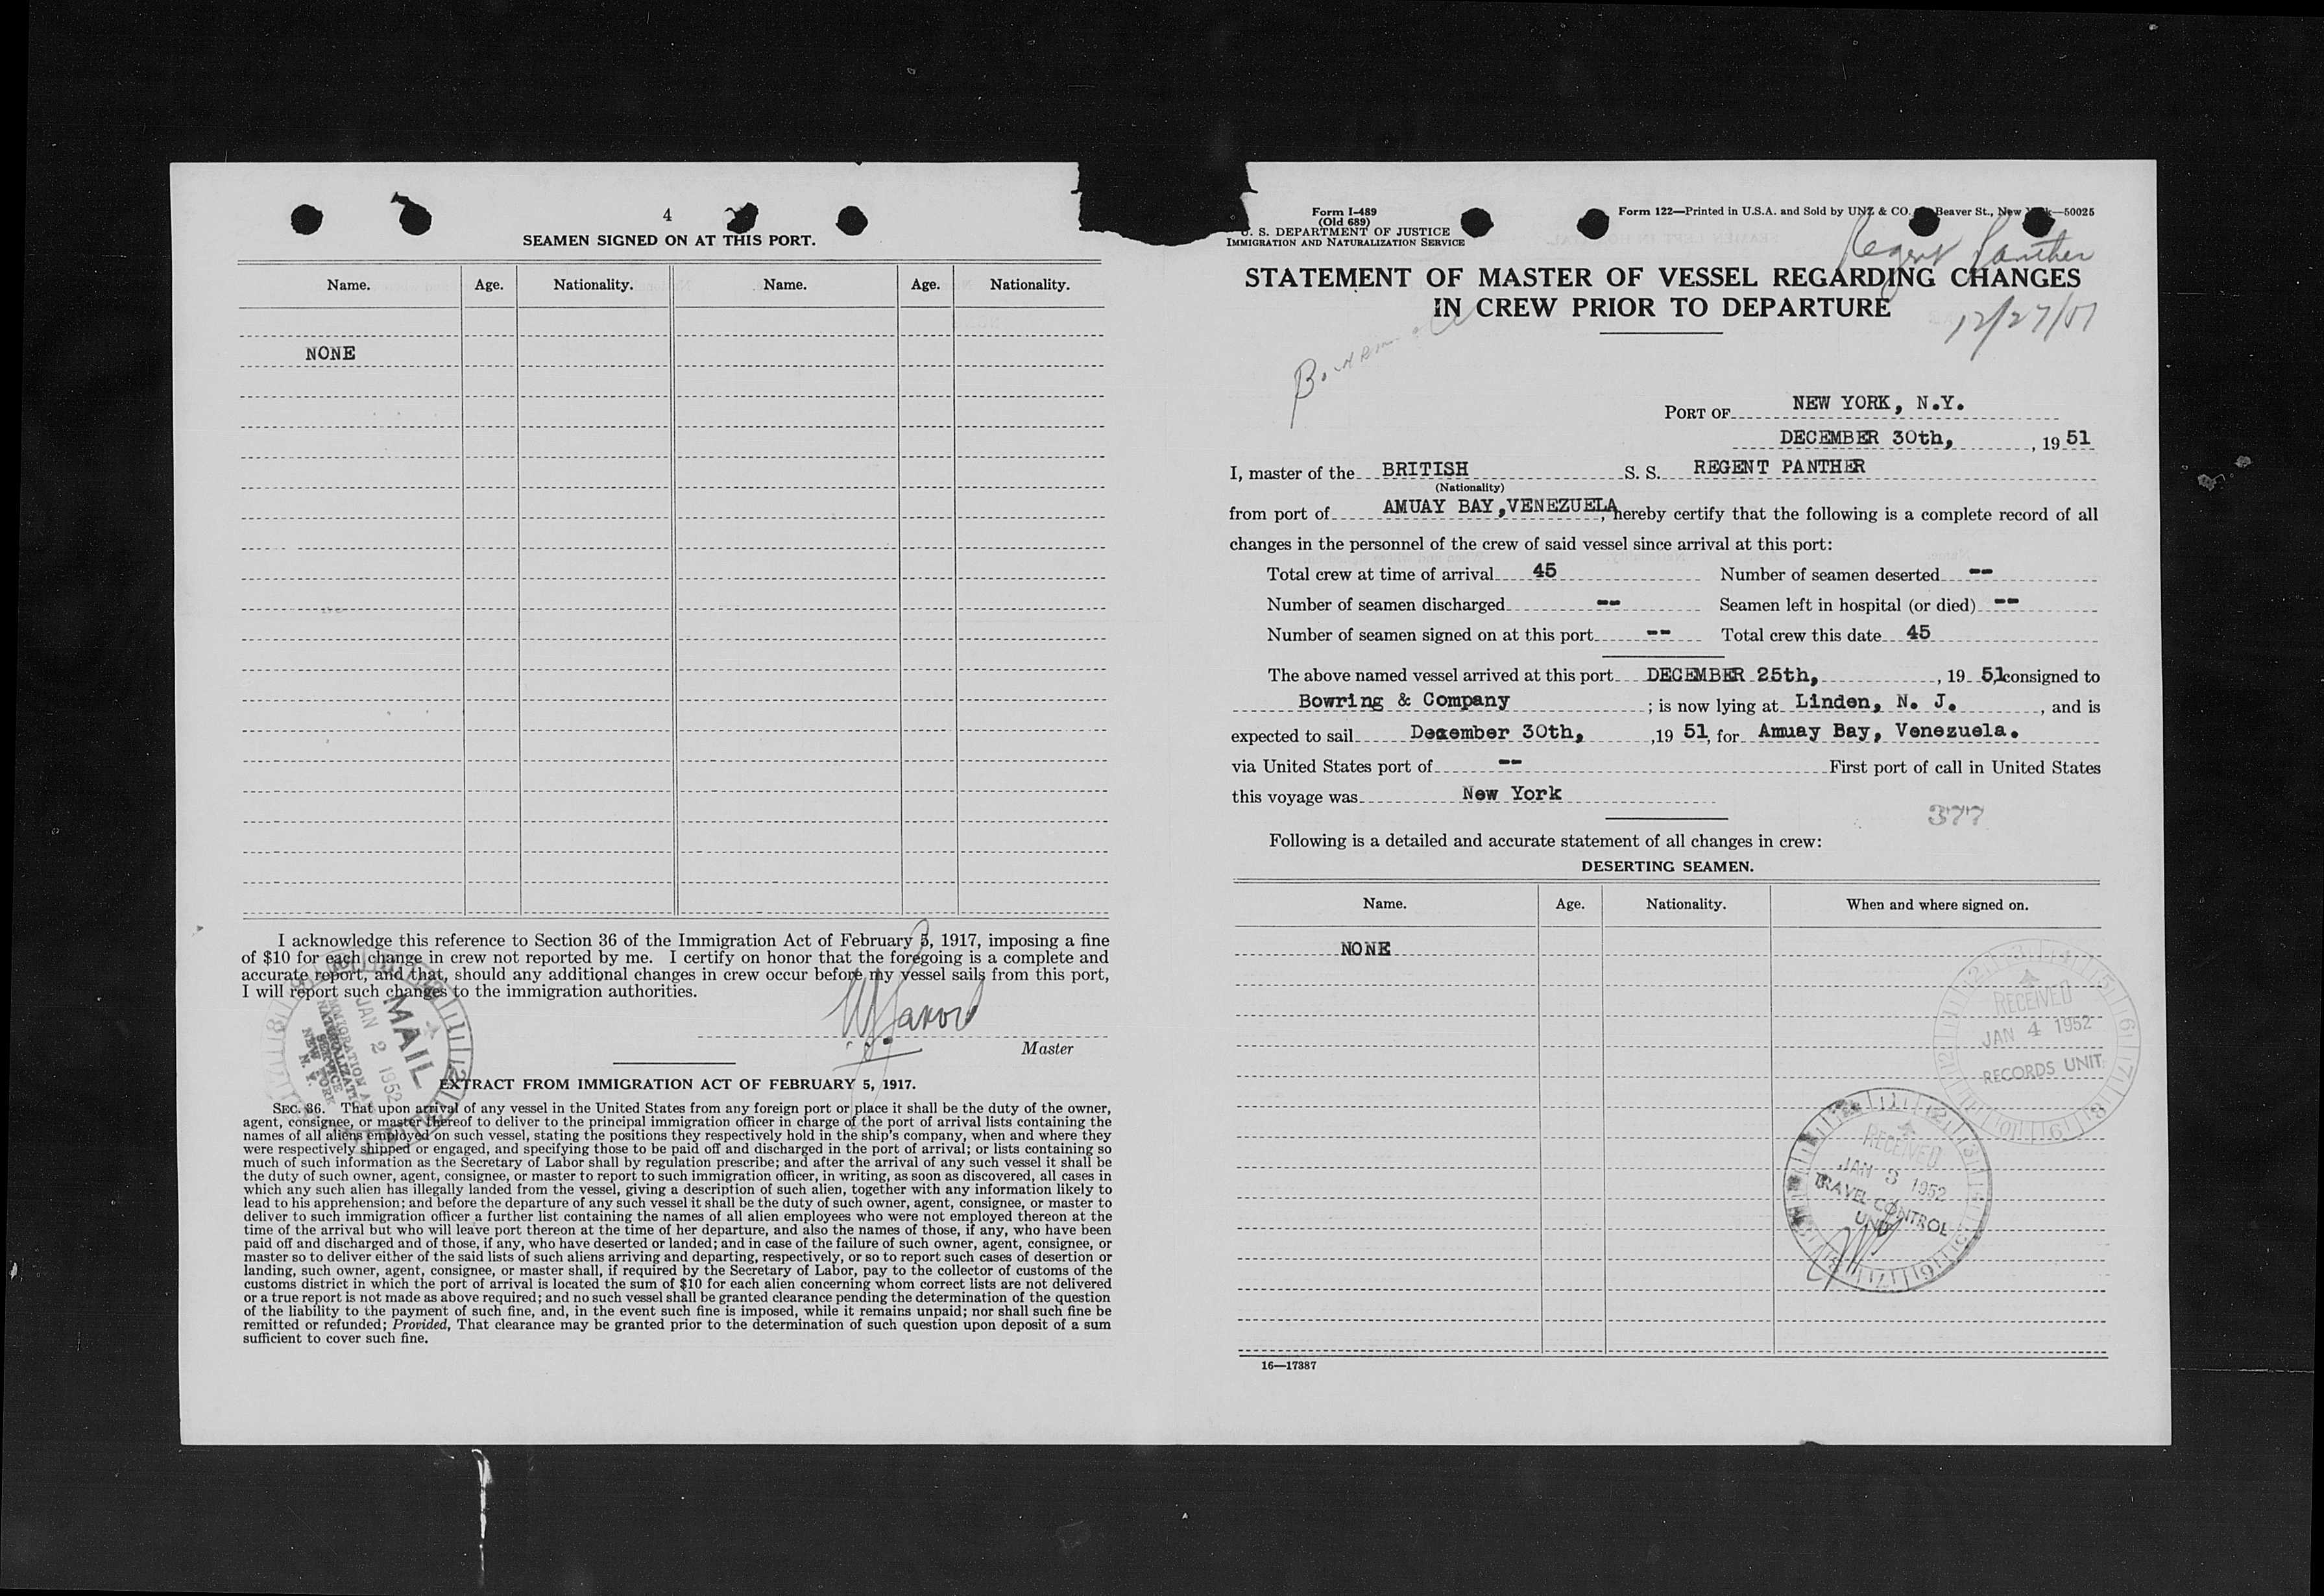 4
SEAMEN SIGNED ON AT THIS PORT.
Name. Age. Nationality. Name. Age. Nationality.
NONE
I acknowledge this reference to Section 36 of the Immigration Act of February 5, 1917, imposing a fine
of $10 for each change in crew not reported by me. I certify on honor that the foregoing is a complete and
accurate report, and that, should any additional changes in crew occur before my vessel sails from this port,
I will report such changes to the immigration authorities.
Master
MAIL
JAN 2 1952
IMMIGRATION AND
NATURALIZATION
SERVICE
NEW YORK
N. Y.
EXTRACT FROM IMMIGRATION ACT OF FEBRUARY 5, 1917.
SEC. 36. That upon arrival of any vessel in the United States from any foreign port or place it shall be the duty of the owner,
agent, consignee, or master thereof to deliver to the principal immigration officer in charge of the port of arrival lists containing the
names of all aliens employed on such vessel, stating the positions they respectively hold in the ship's company, when and where they
were respectively shipped or engaged, and specifying those to be paid off and discharged in the port of arrival; or lists containing so
much of such information as the Secretary of Labor shall by regulation prescribe; and after the arrival of any such vessel it shall be
the duty of such owner, agent, consignee, or master to report to such immigration officer, in writing, as soon as discovered, all cases in
which any such alien has illegally landed from the vessel, giving a description of such alien, together with any information likely to
lead to his apprehension; and before the departure of any such vessel it shall be the duty of such owner, agent, consignee, or master to
deliver to such immigration officer a further list containing the names of all alien employees who were not employed thereon at the
time of the arrival but who will leave port thereon at the time of her departure, and also the names of those, if any, who have been
paid off and discharged and of those, if any, who have deserted or landed; and in case of the failure of such owner, agent, consignee, or
master so to deliver either of the said lists of such aliens arriving and departing, respectively, or so to report such cases of desertion or
landing, such owner, agent, consignee, or master shall, if required by the Secretary of Labor, pay to the collector of customs of the
customs district in which the port of arrival is located the sum of $10 for each alien concerning whom correct lists are not delivered
or a true report is not made as above required; and no such vessel shall be granted clearance pending the determination of the question
of the liability to the payment of such fine, and, in the event such fine is imposed, while it remains unpaid; nor shall such fine be
remitted or refunded; Provided, That clearance may be granted prior to the determination of such question upon deposit of a sum
sufficient to cover such fine.
Form I-489
(Old 689)
U. S. DEPARTMENT OF JUSTICE
IMMIGRATION AND NATURALIZATION SERVICE
Form 122—Printed in U.S.A. and Sold by UNZ & CO. Beaver St., New York—50025
Regent Panther
STATEMENT OF MASTER OF VESSEL REGARDING CHANGES
IN CREW PRIOR TO DEPARTURE
12/27/51
PORT OF NEW YORK, N.Y.
DECEMBER 30th, , 19 51
I, master of the BRITISH S. S. REGENT PANTHER
(Nationality)
from port of AMUAY BAY, VENEZUELA, hereby certify that the following is a complete record of all
changes in the personnel of the crew of said vessel since arrival at this port:
Total crew at time of arrival 45 Number of seamen deserted --
Number of seamen discharged -- Seamen left in hospital (or died) --
Number of seamen signed on at this port -- Total crew this date 45
The above named vessel arrived at this port DECEMBER 25th, , 19 51, consigned to
Bowring & Company ; is now lying at Linden, N. J. , and is
expected to sail December 30th, , 19 51, for Amuay Bay, Venezuela.
via United States port of -- First port of call in United States
this voyage was New York
377
Following is a detailed and accurate statement of all changes in crew:
DESERTING SEAMEN.
Name. Age. Nationality. When and where signed on.
NONE
RECEIVED
JAN 4 1952
RECORDS UNIT
RECEIVED
JAN 3 1952
TRAVEL CONTROL
UNIT
16—17387